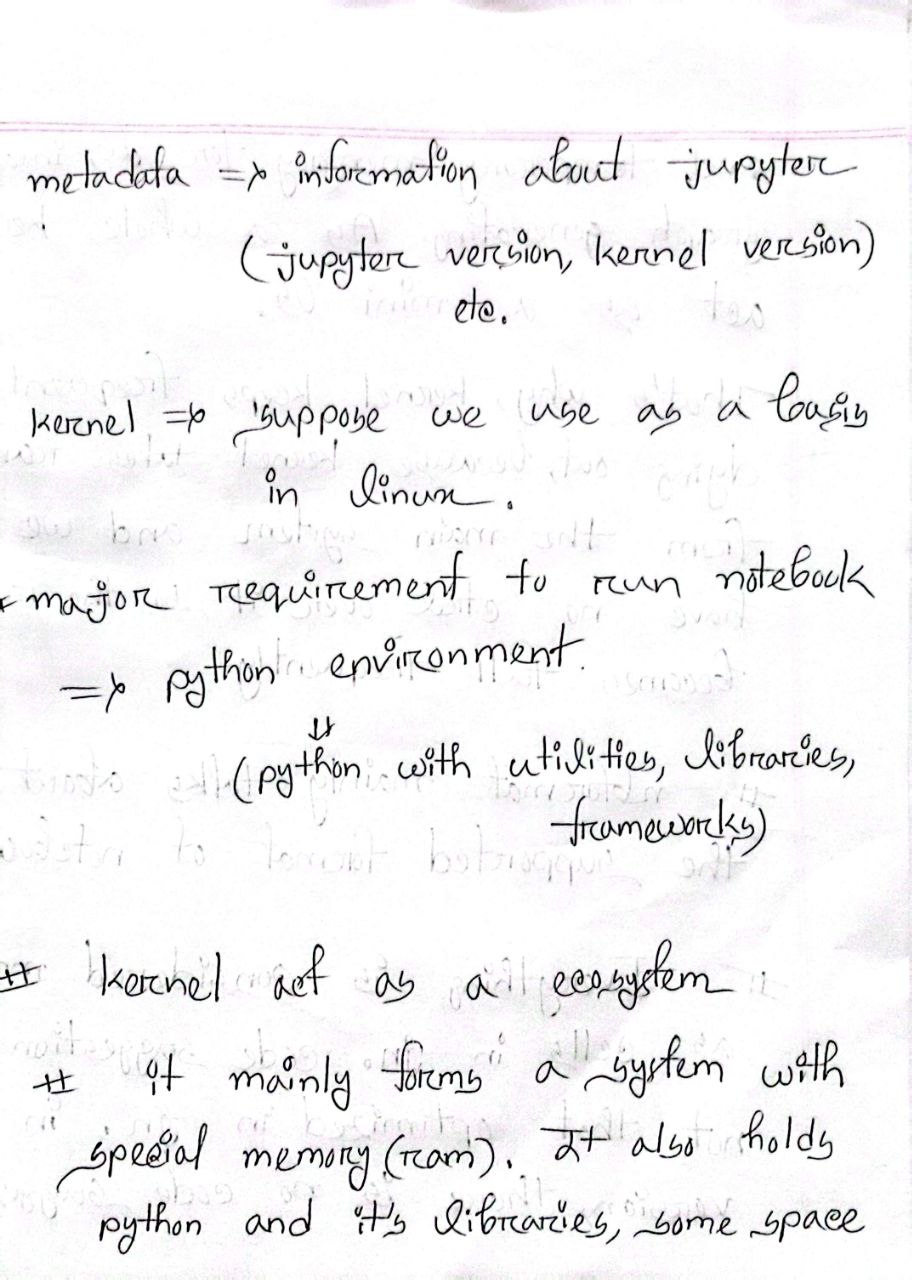 metadata => information about jupyter
(jupyter version, kernel version)
etc.
kernel => suppose we use as a basis
in linux.
major requirement to run notebook
=> python environment.
⇓
(python with utilities, libraries,
frameworks)
# kernel act as a ecosystem
# it mainly forms a system with
special memory (ram). It also holds
python and it's libraries, some space